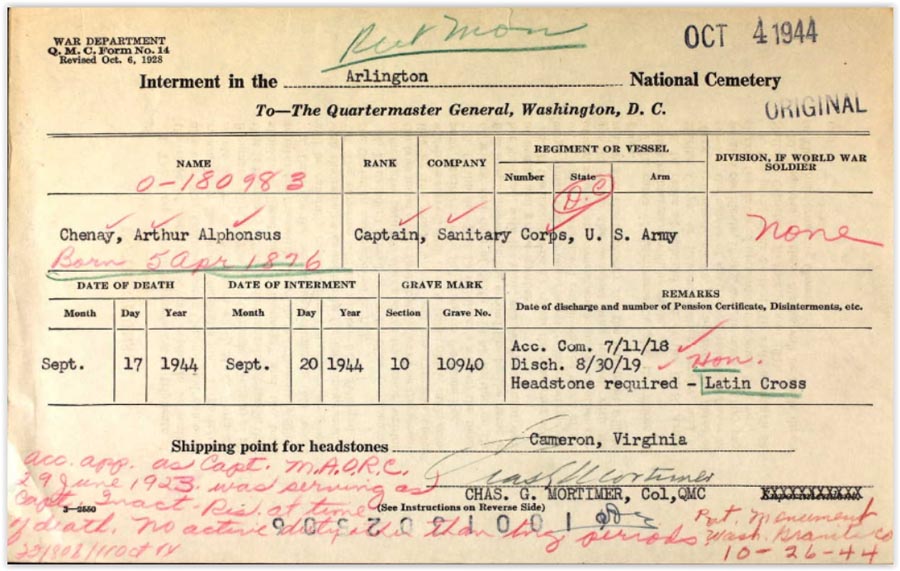 WAR DEPARTMENT
Q. M. C. Form No. 14
Revised Oct. 6, 1928
Pvt Mon
OCT 4 1944
Interment in the Arlington National Cemetery
To—The Quartermaster General, Washington, D. C.
ORIGINAL
NAME RANK COMPANY REGIMENT OR VESSEL DIVISION, IF WORLD WAR SOLDIER
Number State Arm
O-180983
D.C
Chenay, Arthur Alphonsus Captain, Sanitary Corps, U. S. Army None
Born 5 Apr 1876
DATE OF DEATH DATE OF INTERMENT GRAVE MARK REMARKS
Month Day Year Month Day Year Section Grave No. Date of discharge and number of Pension Certificate, Disinterments, etc.
Acc. Com. 7/11/18
Sept. 17 1944 Sept. 20 1944 10 10940 Disch. 8/30/19 Hon.
Headstone required - Latin Cross
Shipping point for headstones Cameron, Virginia
Chas G Mortimer
CHAS. G. MORTIMER, Col, QMC
3-2550 (See Instructions on Reverse Side)
acc. app. as Capt. M.A.O.R.C.
29 June 1923. was serving as
Capt. Inact. Res. at time
of death. No active duty other than tng periods
Pvt. Monument
Wash. Granite Co
10-26-44